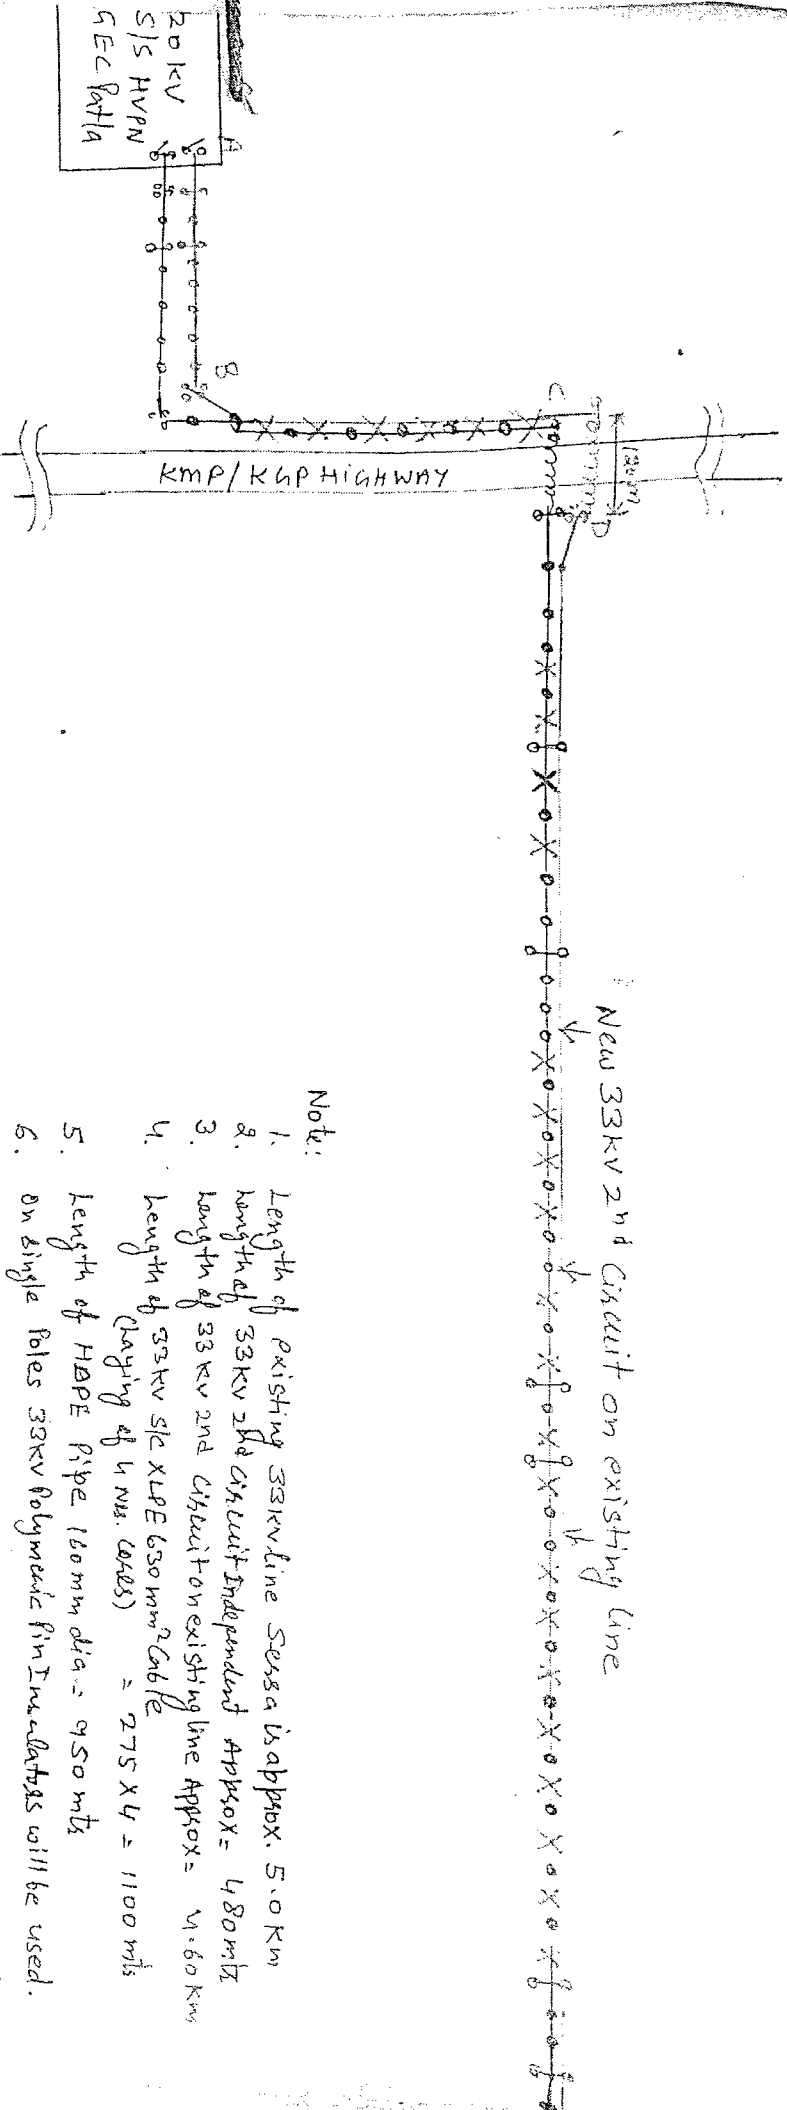 20 KV
S/S HVPN
SEC Patla
A
B
C
D
120m
KMP/KGP HIGHWAY
New 33KV 2nd Circuit on existing line
Note:
1. Length of existing 33KV line Sersa is approx. 5.0 Km
2. Length of 33KV 2nd Circuit Independent Approx = 480 mts
3. Length of 33KV 2nd Circuit on existing line Approx = 4.60 Km
4. Length of 33KV S/C XLPE 630mm² Cable
(Laying of 4 Nos. Cores) = 275 X 4 = 1100 mts
5. Length of HDPE Pipe 160mm dia = 950 mts
6. On single Poles 33KV Polymeric Pin Insulators will be used.